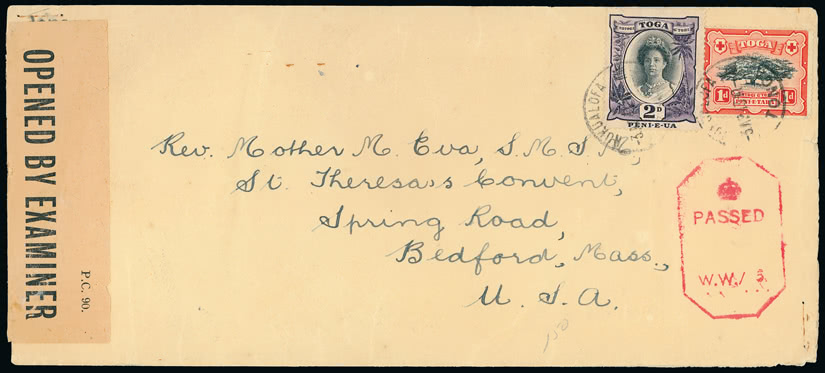 OPENED BY EXAMINER
P.C. 90.
TOGA
2D
PENI-E-UA
TOGA
1d 1d
PENI-E-TAHA
NUKUALOFA
Rev. Mother M. Eva, S.M.S.M.,
St. Theresa's Convent,
Spring Road,
Bedford, Mass.,
U. S. A.
PASSED
W.W/ 3